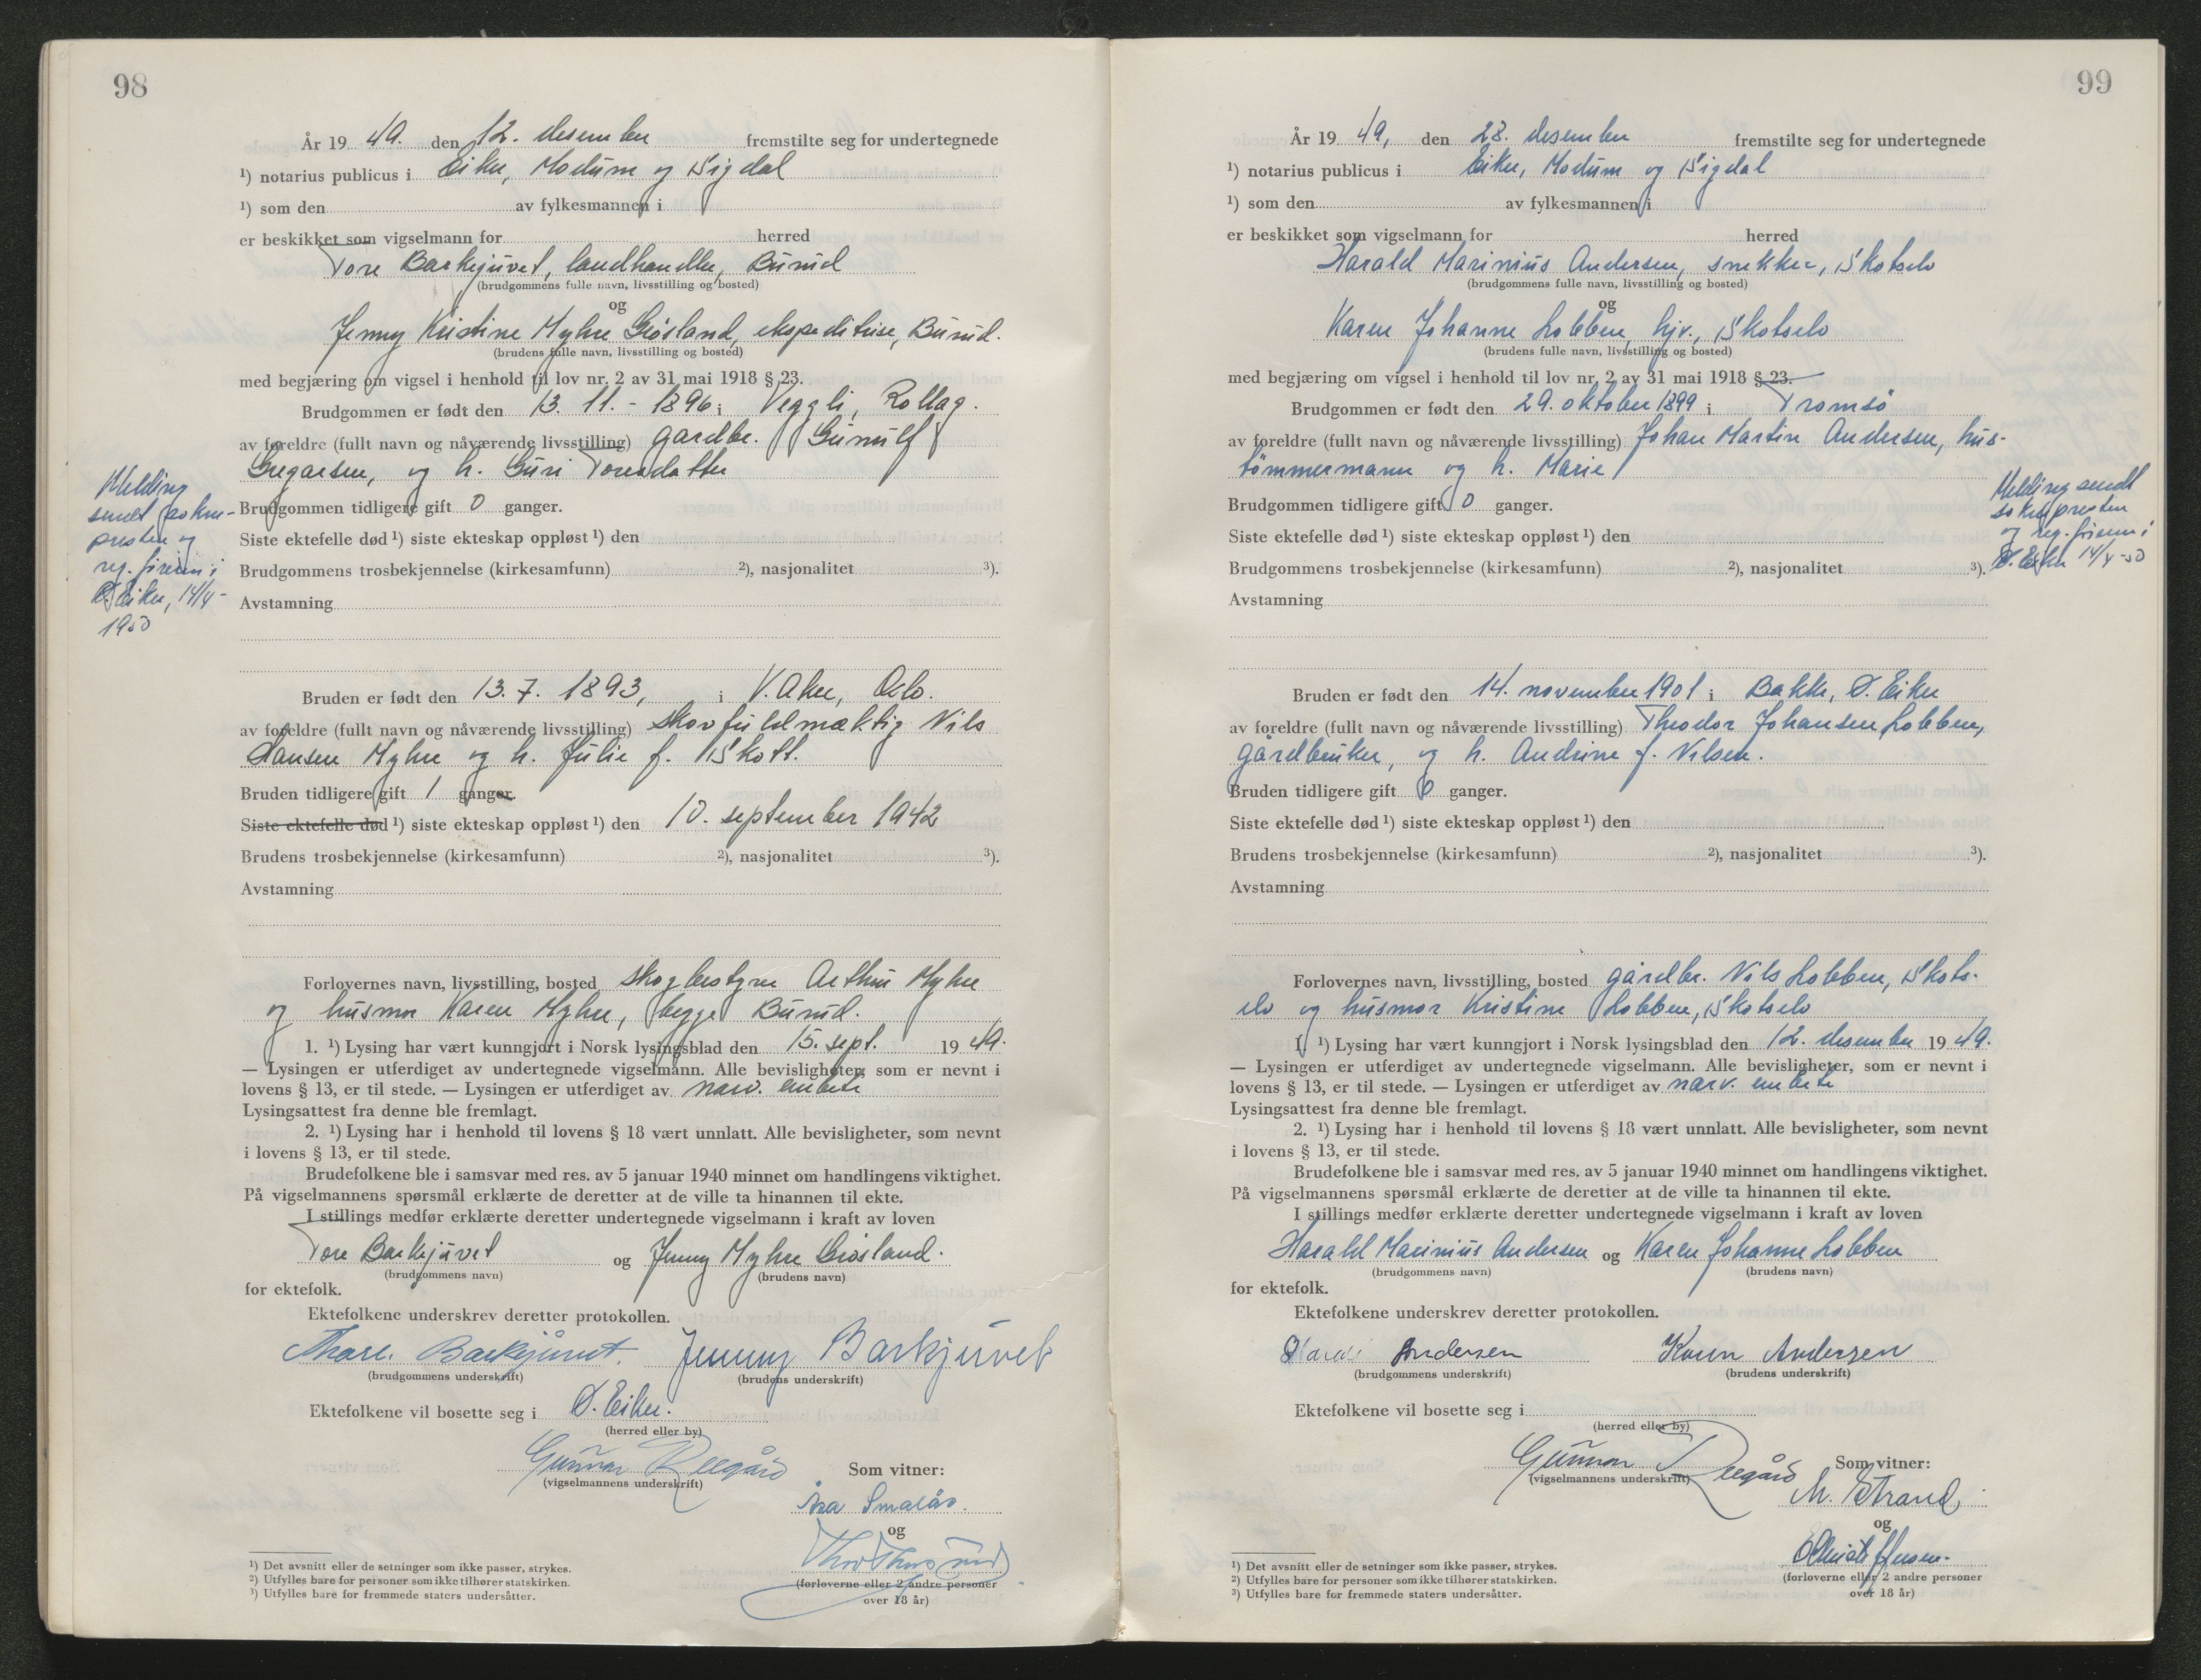 98
År 19 49. den 12. desember fremstilte seg for undertegnede
¹) notarius publicus i Eiker, Modum og Sigdal
¹) som den av fylkesmannen i
er beskikket som vigselmann for herred
Tore Barkejuvet, landhandler, Burud
(brudgommens fulle navn, livsstilling og bosted)
og
Jenny Kristine Myhre Giøsland, ekspeditrise, Burud.
(brudens fulle navn, livsstilling og bosted)
med begjæring om vigsel i henhold til lov nr. 2 av 31 mai 1918 § 23.
Brudgommen er født den 13. 11. - 1896 i Veggli, Rollag.
av foreldre (fullt navn og nåværende livsstilling) gardbr. Gunulf
Gregarsen, og h. Guri Toresdatter
Brudgommen tidligere gift 0 ganger.
Siste ektefelle død ¹) siste ekteskap oppløst ¹) den
Brudgommens trosbekjennelse (kirkesamfunn) ²), nasjonalitet ³).
Avstamning
Melding
sendt sokne-
presten og
reg. føreren i
Ø. Eiker, 14/4-
1950
Bruden er født den 13. 7. 1893, i V. Aker, Oslo.
av foreldre (fullt navn og nåværende livsstilling) skovfuldmæktig Nils
Hansen Myhre og h. Julie f. Skott.
Bruden tidligere gift 1 ganger.
Siste ektefelle død ¹) siste ekteskap oppløst ¹) den 10. september 1942
Brudens trosbekjennelse (kirkesamfunn) ²), nasjonalitet ³).
Avstamning
Forlovernes navn, livsstilling, bosted skogbestyrer Arthur Myhre
og husmor Karen Myhre, begge Burud.
1. ¹) Lysing har vært kunngjort i Norsk lysingsblad den 15. sept. 19 49.
— Lysingen er utferdiget av undertegnede vigselmann. Alle bevisligheter, som er nevnt i
lovens § 13, er til stede. — Lysingen er utferdiget av nærv. embete
Lysingsattest fra denne ble fremlagt.
2. ¹) Lysing har i henhold til lovens § 18 vært unnlatt. Alle bevisligheter, som nevnt
i lovens § 13, er til stede.
Brudefolkene ble i samsvar med res. av 5 januar 1940 minnet om handlingens viktighet.
På vigselmannens spørsmål erklærte de deretter at de ville ta hinannen til ekte.
I stillings medfør erklærte deretter undertegnede vigselmann i kraft av loven
Tore Barkejuvet og Jenny Myhre Giøsland.
(brudgommens navn) (brudens navn)
for ektefolk.
Ektefolkene underskrev deretter protokollen.
Thore. Barkjuvet. Jenny Barkjuvet
(brudgommens underskrift) (brudens underskrift)
Ektefolkene vil bosette seg i Ø. Eiker.
(herred eller by)
Gunnar Reegård Som vitner:
(vigselmannens underskrift)
Åsa Smalås.
og
(forloverne eller 2 andre personer
over 18 år)
¹) Det avsnitt eller de setninger som ikke passer, strykes.
²) Utfylles bare for personer som ikke tilhører statskirken.
³) Utfylles bare for fremmede staters undersåtter.
99
År 19 49, den 28. desember fremstilte seg for undertegnede
¹) notarius publicus i Eiker, Modum og Sigdal
¹) som den av fylkesmannen i
er beskikket som vigselmann for herred
Harald Marinius Andersen, snekker, Skotselv
(brudgommens fulle navn, livsstilling og bosted)
og
Karen Johanne Lobben, hjv., Skotselv
(brudens fulle navn, livsstilling og bosted)
med begjæring om vigsel i henhold til lov nr. 2 av 31 mai 1918 § 23.
Brudgommen er født den 29. oktober 1899 i Tromsø
av foreldre (fullt navn og nåværende livsstilling) Johan Martin Andersen, hus-
tømmermann og h. Marie
Brudgommen tidligere gift 0 ganger.
Siste ektefelle død ¹) siste ekteskap oppløst ¹) den
Brudgommens trosbekjennelse (kirkesamfunn) ²), nasjonalitet ³).
Avstamning
Melding sendt
soknepresten
og reg. føreren i
Ø. Eiker 14/4-50
Bruden er født den 14. november 1901 i Bakke, Ø. Eiker
av foreldre (fullt navn og nåværende livsstilling) Theodor Johansen Lobben,
gårdbruker, og h. Andrine f. Nilsen.
Bruden tidligere gift 0 ganger.
Siste ektefelle død ¹) siste ekteskap oppløst ¹) den
Brudens trosbekjennelse (kirkesamfunn) ²), nasjonalitet ³).
Avstamning
Forlovernes navn, livsstilling, bosted gårdbr. Nils Lobben, Skots-
elv og husmor Kristine Lobben, Skotselv
1. ¹) Lysing har vært kunngjort i Norsk lysingsblad den 12. desember 19 49.
— Lysingen er utferdiget av undertegnede vigselmann. Alle bevisligheter, som er nevnt i
lovens § 13, er til stede. — Lysingen er utferdiget av nærv. embete
Lysingsattest fra denne ble fremlagt.
2. ¹) Lysing har i henhold til lovens § 18 vært unnlatt. Alle bevisligheter, som nevnt
i lovens § 13, er til stede.
Brudefolkene ble i samsvar med res. av 5 januar 1940 minnet om handlingens viktighet.
På vigselmannens spørsmål erklærte de deretter at de ville ta hinannen til ekte.
I stillings medfør erklærte deretter undertegnede vigselmann i kraft av loven
Harald Marinius Andersen og Karen Johanne Lobben
(brudgommens navn) (brudens navn)
for ektefolk.
Ektefolkene underskrev deretter protokollen.
Harald Andersen Karen Andersen
(brudgommens underskrift) (brudens underskrift)
Ektefolkene vil bosette seg i
(herred eller by)
Gunnar Reegård Som vitner:
(vigselmannens underskrift)
M. Strand,
og
(forloverne eller 2 andre personer
over 18 år)
¹) Det avsnitt eller de setninger som ikke passer, strykes.
²) Utfylles bare for personer som ikke tilhører statskirken.
³) Utfylles bare for fremmede staters undersåtter.